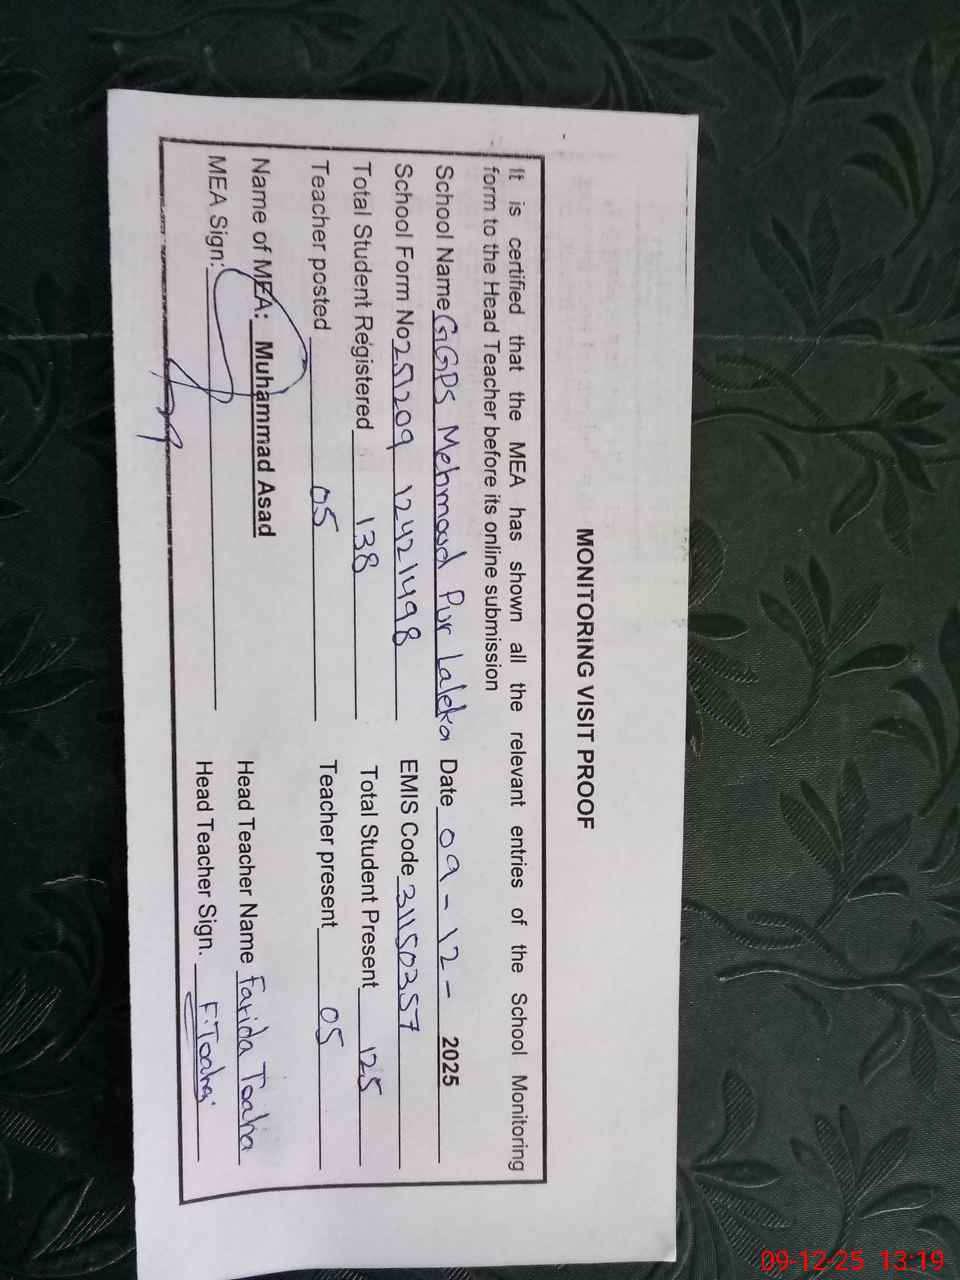 MONITORING VISIT PROOF
It is certified that the MEA has shown all the relevant entries of the School Monitoring
form to the Head Teacher before its online submission
School Name GGPS Mehmood Pur Laleka Date 09-12- 2025
School Form No 251209 12421498 EMIS Code 31150357
Total Student Registered 138 Total Student Present 125
Teacher posted 05 Teacher present 05
Name of MEA: Muhammad Asad Head Teacher Name Farida Toaha
MEA Sign: Head Teacher Sign. F.Toaha
09-12-25 13:19